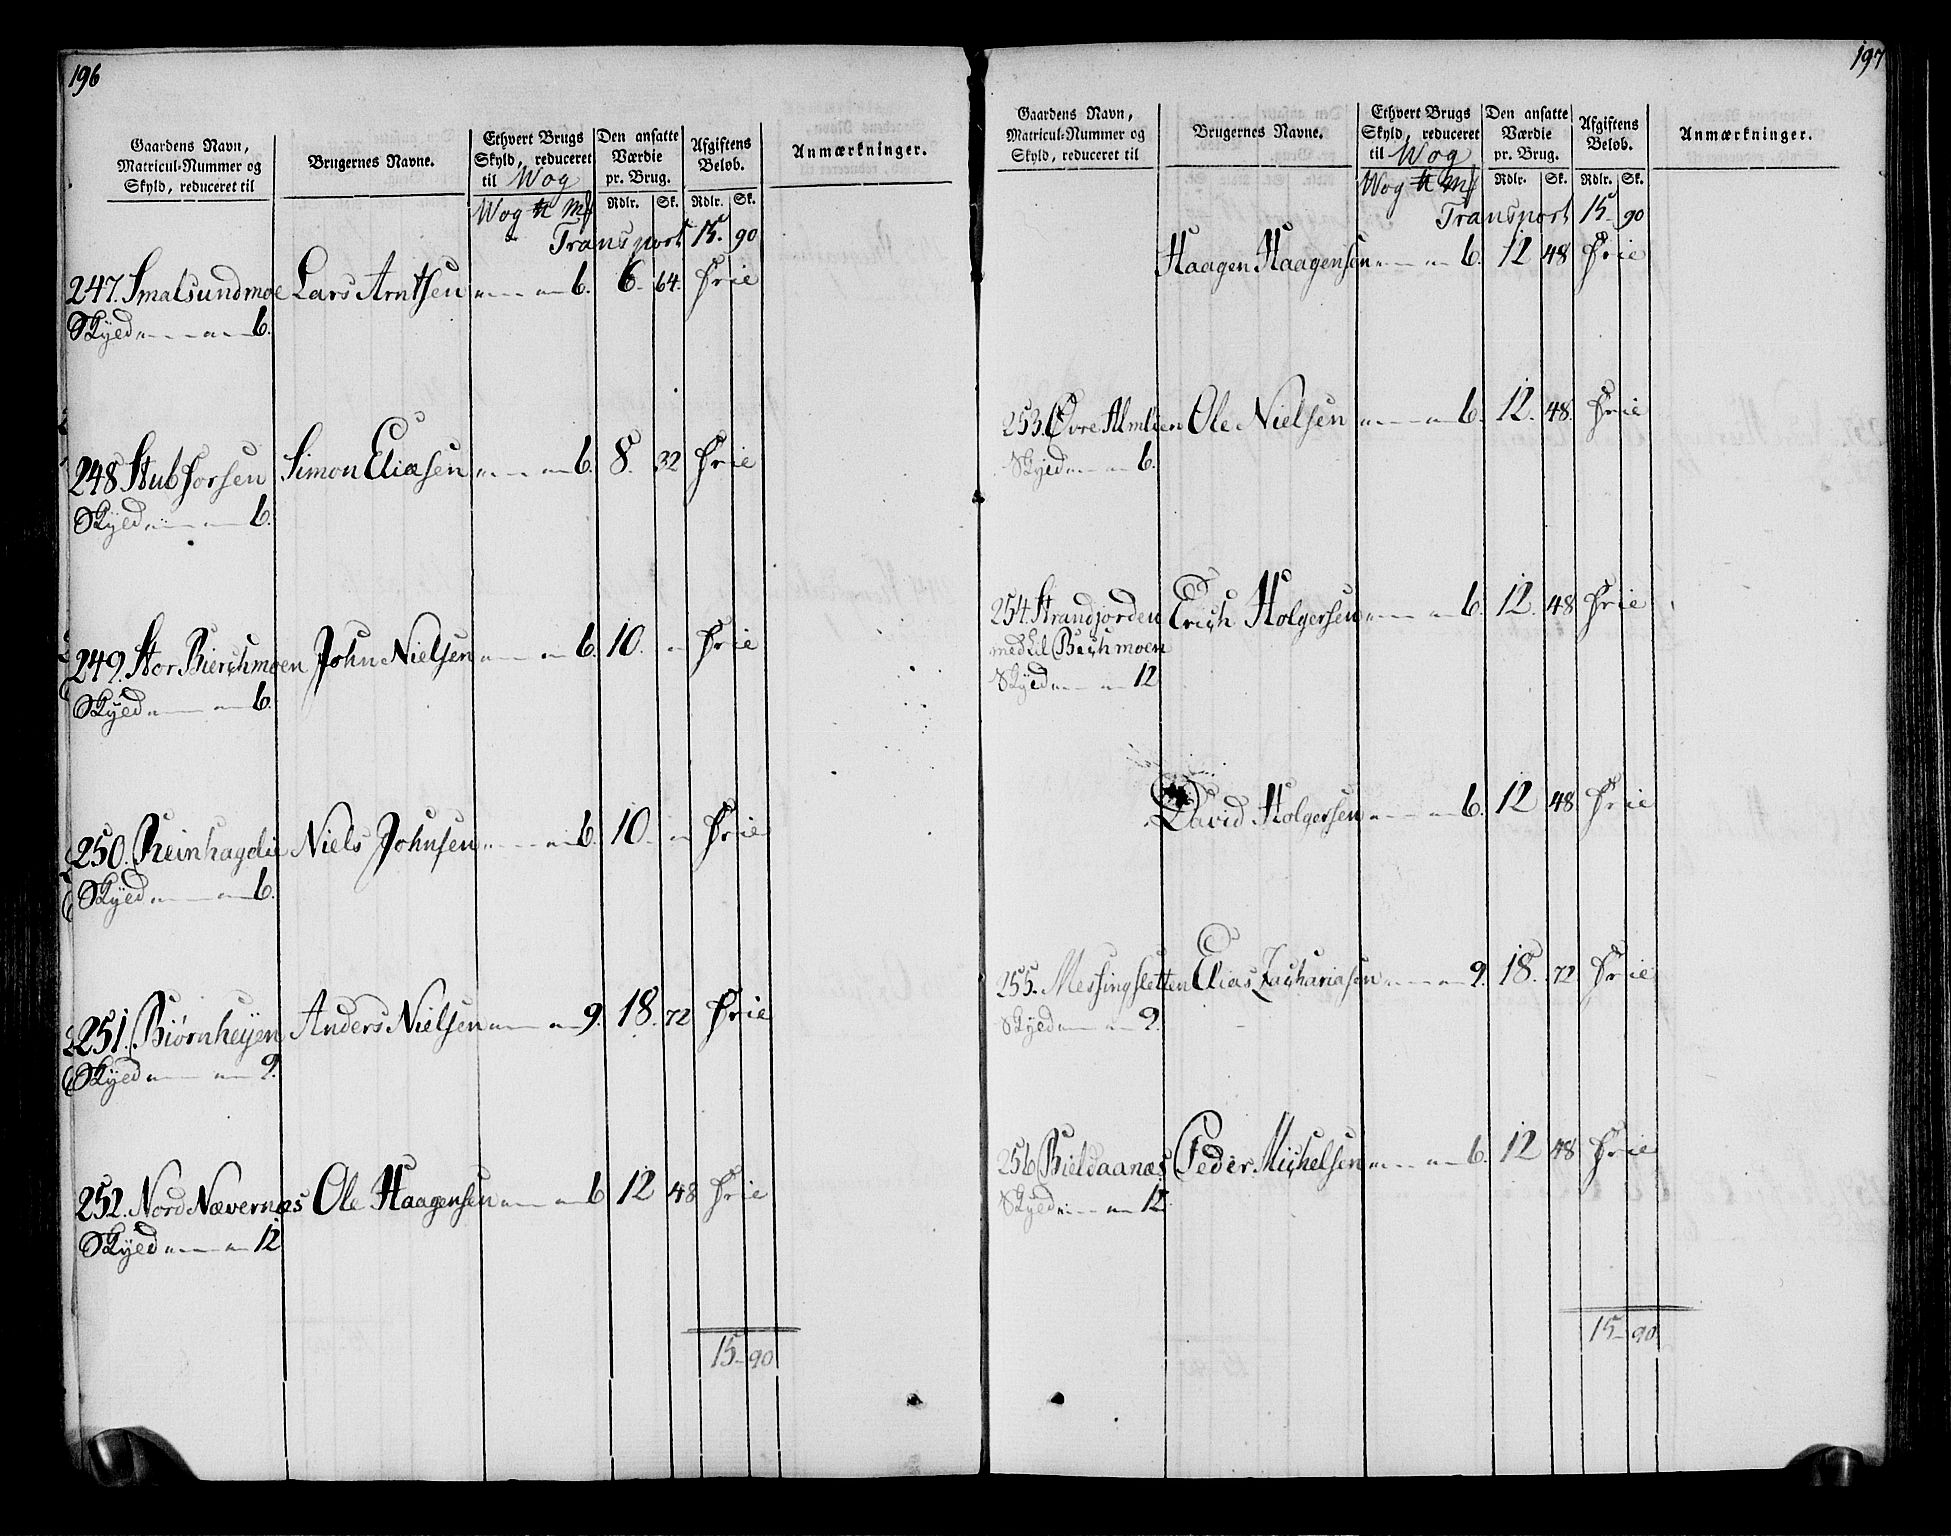 196
Gaardens Navn, Matricul-Nummer og Skyld, reduceret til
Brugernes Navne.
Ethvert Brugs Skyld, reduceret til Wog
Den ansatte Værdie pr. Brug.
Afgiftens Beløb.
Anmærkninger.
Wog ℔ Mk Rdlr. Sk. Rdlr. Sk.
Transport 15. 90
247. Smalsundmoe Lars Arntsen " — — " — 6. 6. 64. Frie
Skyed " — — " — 6.
248 Stubforsen Simon Eliasen " — — " — 6. 8. 32 Frie
Skyed " — — " — 6.
249. Stor Bierchmoen John Nielsen " — — " — 6. 10. — " Frie
Skyed " — — " — 6.
250. Reinhagelie Niels Johnsen " — — " — 6. 10. — " Frie
Skyed " — — " — 6.
251. Biørnheyen Anders Nielsen " — — " — 9. 18. 72 Frie
Skyed " — — " — 9.
252. Nord Nævernæs Ole Haagensen " — — " — 6 12 48 Frie
Skyed " — — " — 12
15 — 90
197
Gaardens Navn, Matricul-Nummer og Skyld, reduceret til
Brugernes Navne.
Ethvert Brugs Skyld, reduceret til Wog
Den ansatte Værdie pr. Brug.
Afgiftens Beløb.
Anmærkninger.
Wog ℔ Mk Rdlr. Sk. Rdlr. Sk.
Transport 15 — 90
Haagen Haagensen " — — " — 6. 12 48 Frie
253. Øvre Almlien Ole Nielsen " — — " — 6. 12. 48. Frie
Skyed " — — " — 6.
254. Strandjorden Erich Holgersen " — — " — 6. 12. 48 Frie
med Lil Bechmoen
Skyed " — — " — 12
David Holgersen " — — " — 6. 12 48 Frie
255. Messingsletten Elias Zachariasen " — — " — 9. 18. 72 Frie
Skyed " — — " — 9.
256 Bieldaanæs Peder Michelsen " — — " — 6. 12 48 Frie
Skyed " — — " — 12
15 — 90